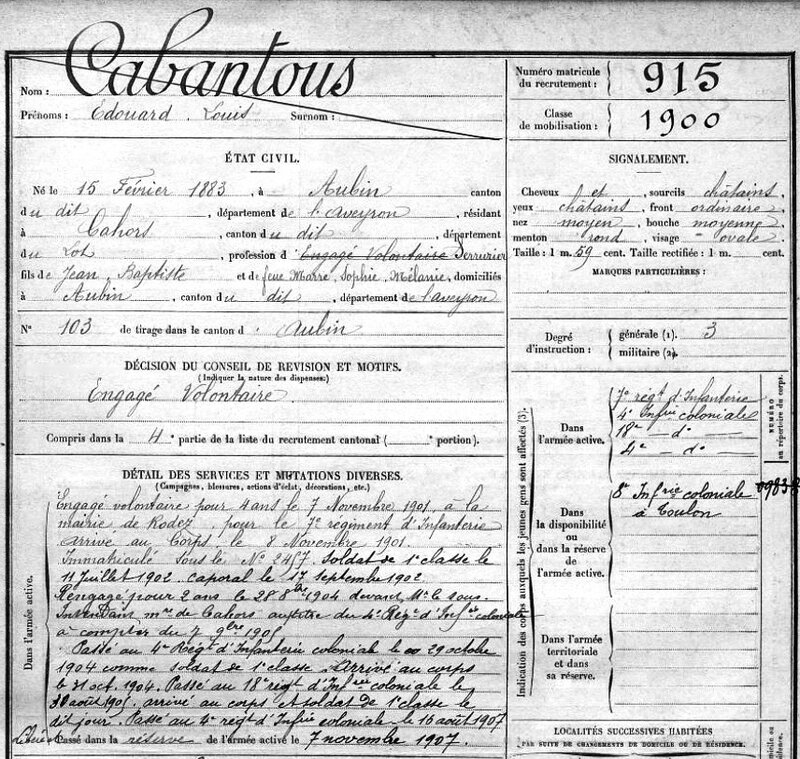 Nom : Cabantous
Prénoms : Edouard Louis Surnom :
ÉTAT CIVIL.
Né le 15 Février 1883, à Aubin canton
du dit, département de l'Aveyron, résidant
à Cahors, canton du dit, département
du Lot, profession d'Engagé Volontaire Serrurier
fils de Jean Baptiste et de feue Marre, Sophie, Mélanie, domiciliés
à Aubin, canton du dit, département de l'aveyron
N° 103 de tirage dans le canton d' Aubin
DÉCISION DU CONSEIL DE REVISION ET MOTIFS.
(Indiquer la nature des dispenses)
Engagé Volontaire
Compris dans la 4e partie de la liste du recrutement cantonal ( e portion).
DÉTAIL DES SERVICES ET MUTATIONS DIVERSES.
(Campagnes, blessures, actions d'éclat, décorations, etc.)
Dans l'armée active.
Engagé volontaire pour 4 ans le 7 Novembre 1901, à la
mairie de Rodez pour le 7e régiment d'Infanterie
Arrivé au Corps le 8 Novembre 1901
Immatriculé sous le N° 2457. Soldat de 1e classe le
11 Juillet 1902. Caporal le 17 septembre 1902.
Rengagé pour 2 ans le 28 8bre 1904 devant Mr le sous.
Intendant mre de Cahors au titre du 4e Régt d'Infrie coloniale
à compter du 7 9bre 1905
Passé au 4e Régt d'Infanterie coloniale le 29 octobre
1904 comme soldat de 1e classe. Arrivé au corps
le 31 oct. 1904. Passé au 18e régt d'Infrie coloniale le
août 1905, arrivé au corps et soldat de 1e classe le
dit jour. Passé au 4e régt d'Infrie coloniale le 16 août 1907
Passé dans la réserve de l'armée active le 7 novembre 1907.
Numéro matricule du recrutement : 915
Classe de mobilisation : 1900
SIGNALEMENT.
Cheveux et, sourcils châtains
yeux châtains, front ordinaire
nez moyen, bouche moyenne
menton rond, visage ovale
Taille : 1 m. 59 cent. Taille rectifiée : 1 m. cent.
MARQUES PARTICULIÈRES :
Degré d'instruction : générale (1). 3
militaire (2).
Indication des corps auxquels les jeunes gens sont affectés (3).
NUMÉRO
au répertoire du corps.
Dans l'armée active.
7e régt d'Infanterie
4e Infrie coloniale
18e — do —
4e — do —
Dans la disponibilité ou dans la réserve de l'armée active.
8e Infrie coloniale
à Toulon
Dans l'armée territoriale et dans sa réserve.
LOCALITÉS SUCCESSIVES HABITÉES
PAR SUITE DE CHANGEMENTS DE DOMICILE OU DE RÉSIDENCE.